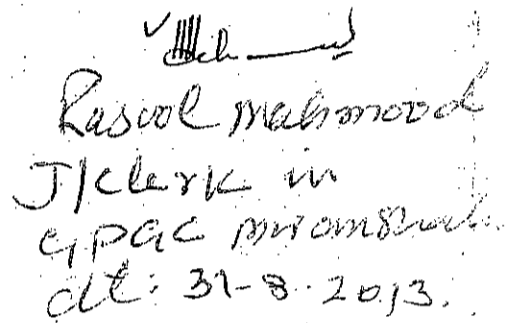 Rasool Mahmood
J/clerk in
GPGC miramshah
dt: 31-8-2013.